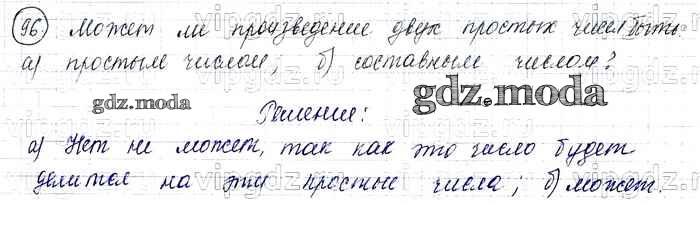 96. Может ли произведение двух простых чисел быть:
а) простым числом; б) составным числом?
gdz.moda
gdz.moda
Решение:
а) Нет не может, так как это число будет
делится на эти простые числа; б) может.